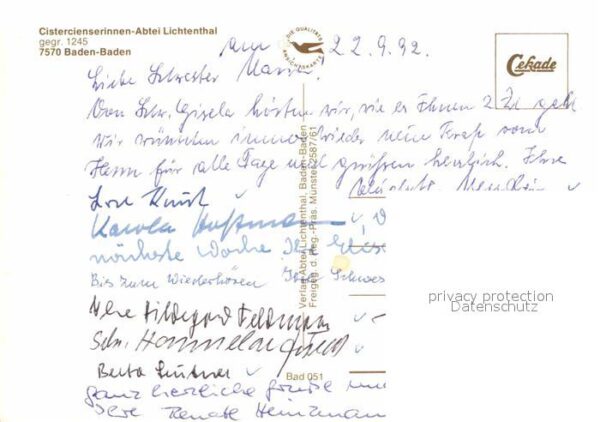 Cistercienserinnen-Abtei Lichtenthal
gegr. 1245
7570 Baden-Baden
DIE QUALITÄTS ANSICHTSKARTE
Cekade
am 22.9.92.
Liebe Schwester
Von Schw. Gisela hörten wir, wie es Ihnen z Zt geht
Wir wünschen immer wieder neue Kraft vom
Herrn für alle Tage und grüßen herzlich. Ihre
Karola Hoffmann
nächste Woche
Bis zum Wiederhören Ihre Schwes
Ihre Hildegard Feldmann
Schw. Hannelore
Berta
ganz herzliche Grüße
Ihre Renate Heinzmann
Verlag Abtei Lichtenthal, Baden-Baden
Freigeg. d. Reg.-Präs. Münster 2587/61
Bad 051
privacy protection
Datenschutz